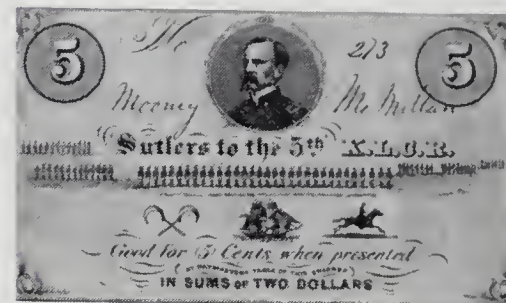 5 No 213 5
Mooney Mc Millan
Sutlers to the 5th X.L.C.R.
Good for (5) Cents, when presented
IN SUMS OF TWO DOLLARS